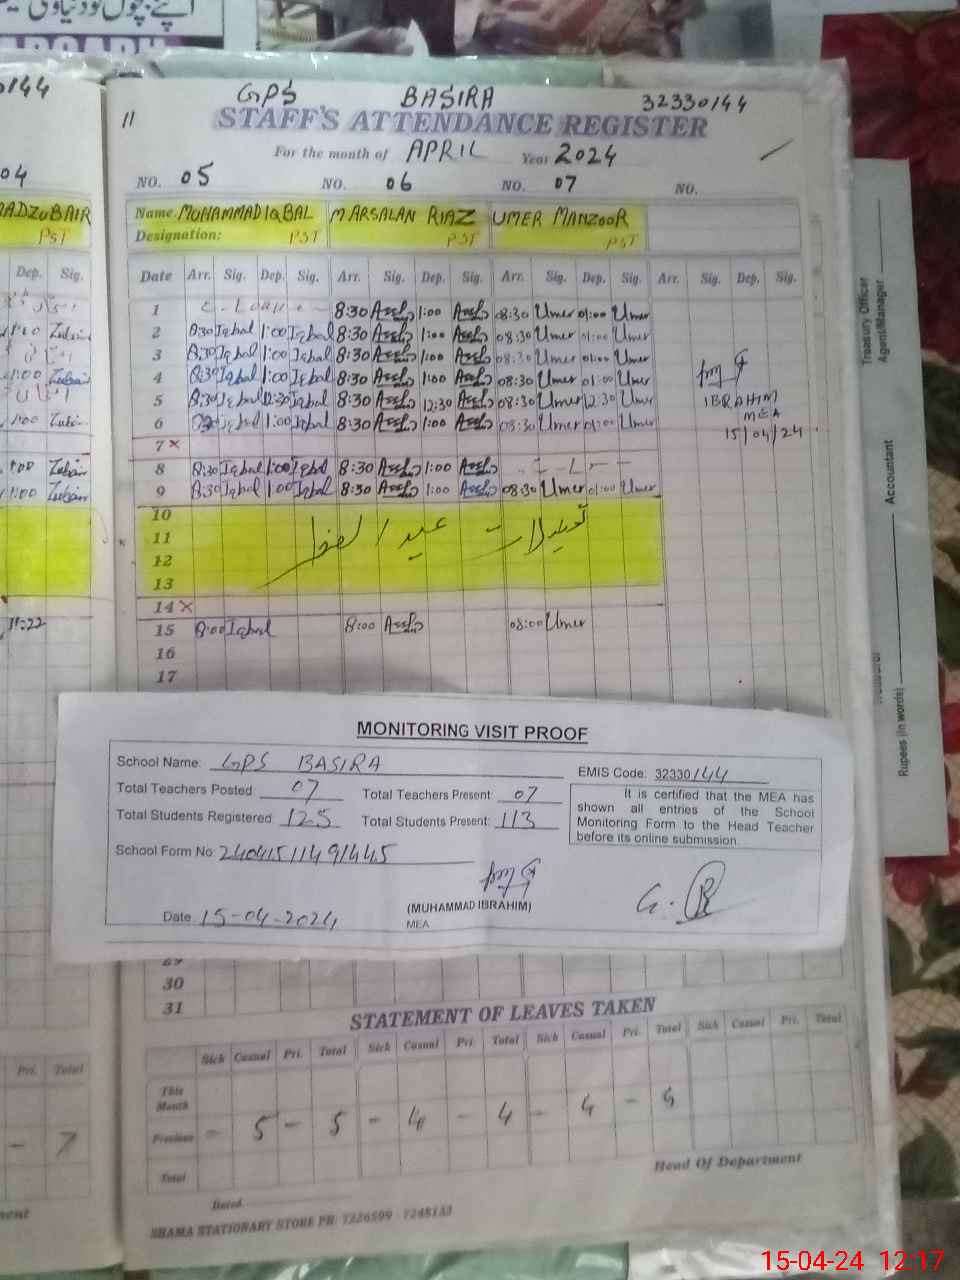 GPS BASIRA 32330144
11
STAFF'S ATTENDANCE REGISTER
For the month of APRIL Year 2024
NO. 05 NO. 06 NO. 07 NO.
Name. MUHAMMAD IQBAL M ARSALAN RIAZ UMER MANZOOR
Designation: PST PST PST
Date Arr. Sig. Dep. Sig. Arr. Sig. Dep. Sig. Arr. Sig. Dep. Sig. Arr. Sig. Dep. Sig.
1 C-Leave- 8:30 1:00 08:30 Umer 01:00 Umer
2 8:30 Iqbal 1:00 Iqbal 8:30 1:00 08:30 Umer 01:00 Umer
3 8:30 Iqbal 1:00 Iqbal 8:30 1:00 08:30 Umer 01:00 Umer
4 8:30 Iqbal 1:00 Iqbal 8:30 1:00 08:30 Umer 01:00 Umer
5 8:30 Iqbal 12:30 Iqbal 8:30 12:30 08:30 Umer 12:30 Umer
IBRAHIM
MEA
6 Iqbal 1:00 Iqbal 8:30 1:00 08:30 Umer 01:00 Umer
15/04/24
7 ×
8 8:30 Iqbal 1:00 Iqbal 8:30 1:00 - C - L - -
9 8:30 Iqbal 1:00 Iqbal 8:30 1:00 08:30 Umer 01:00 Umer
10
11 تعطیلات عید الفطر
12
13
14 ×
15 8:00 Iqbal 8:00 08:00 Umer
16
17
MONITORING VISIT PROOF
School Name: GPS BASIRA
EMIS Code: 32330144
Total Teachers Posted 07 Total Teachers Present: 07
Total Students Registered: 125 Total Students Present: 113
It is certified that the MEA has
shown all entries of the School
Monitoring Form to the Head Teacher
before its online submission.
School Form No: 24041511491445
(MUHAMMAD IBRAHIM)
MEA
Date 15-04-2024
29
30
31
STATEMENT OF LEAVES TAKEN
Sick Casual Pri. Total Sick Casual Pri. Total Sick Casual Pri. Total Sick Casual Pri. Total
This Month
Previous - 5 - 5 - 4 - 4 - 4 - 4
Total
Head Of Department
Dated
SHAMA STATIONARY STORE PH: 7226599 - 7248133
Treasury Officer
Agent/Manager
Accountant
Rupees (In words)
0144
04
PST
Dep. Sig.
11:22
Pri. Total
- 7
15-04-24 12:17